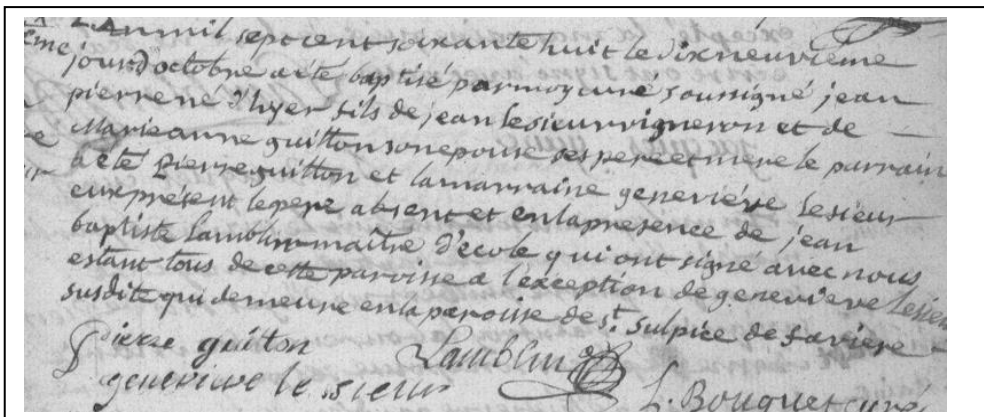 L'an mil sept cent soixante huit le dix neuvieme
jour d'octobre a été baptisé par moy curé soussigné jean
pierre né d'hyer fils de jean lesieur vigneron et de
Marie anne guitton son epouse ses pere et mere le parrain
a eté Pierre guitton et la marraine genevieve lesieur
eux présent le pere absent et en la presence de jean
baptiste Lamblin maître d'ecole qui ont signé avec nous
estant tous de cette paroisse a l'exception de genevieve lesieur
susdite qui demeure en la paroisse de st. sulpice de faviere
pierre guitton
Lamblin
genevieve le sieur
L. Bouquet curé